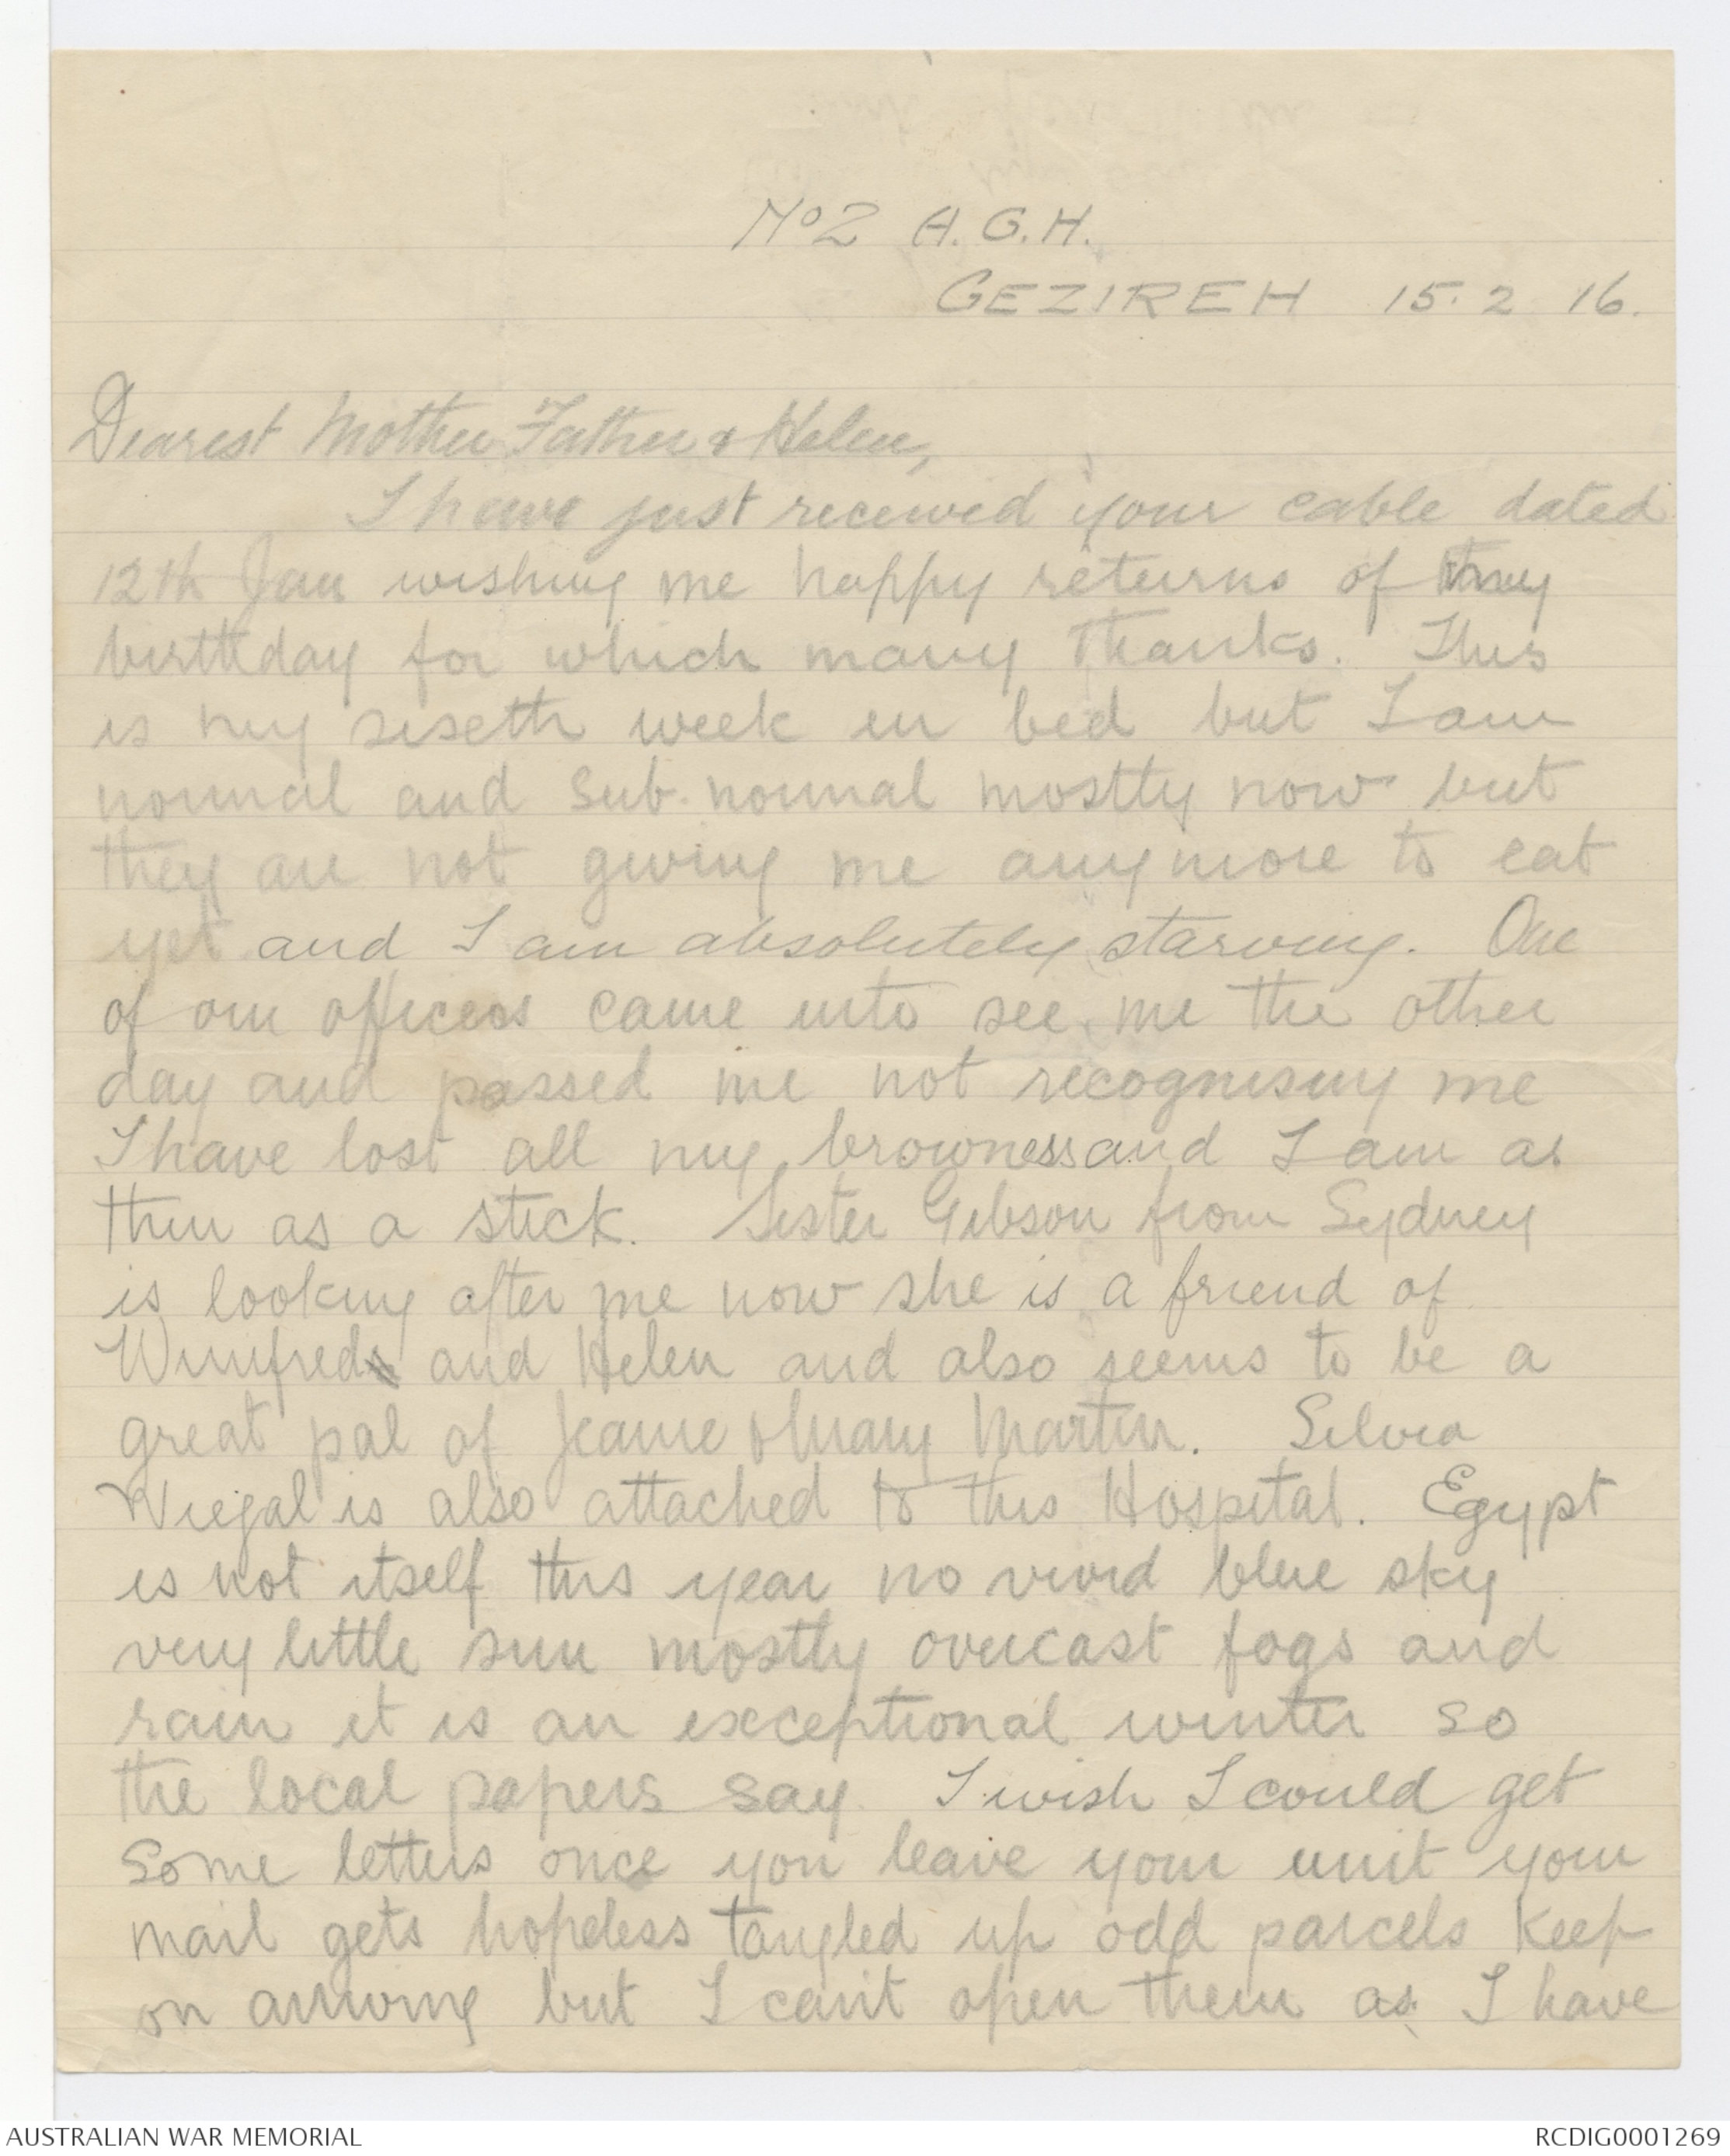 No 2 A.G.H.
GEZIREH 15.2 16.
Dearest Mother Father & Helen,
I have just received your cable dated
12th Jan wishing me happy returns of my
birthday for which many thanks. This
is my sixth week in bed but I am
normal and sub-normal mostly now but
they are not giving me anymore to eat
yet and I am absolutely starving. One
of our officers came into see me the other
day and passed me not recognising me
I have lost all my browness and I am as
thin as a stick. Sister Gibson from Sydney
is looking after me now she is a friend of
Winifred and Helen and also seems to be a
great pal of Jeanie & Mary Martin. Silvia
Wiegal is also attached to this Hospital. Egypt
is not itself this year no vivid blue sky
very little sun mostly overcast fogs and
rain it is an exceptional winter so
the local papers say. I wish I could get
some letters once you leave your unit your
mail gets hopeless tangled up odd parcels keep
on arriving but I can't open them as I have
AUSTRALIAN WAR MEMORIAL
RCDIG0001269